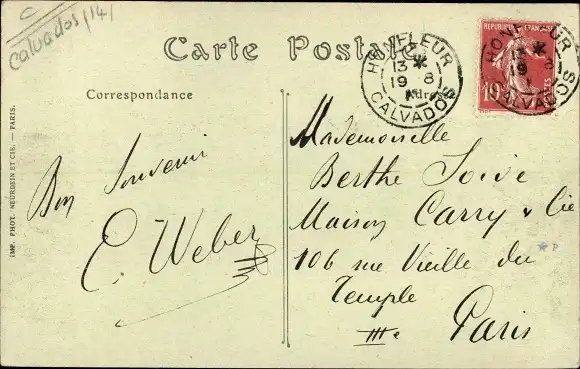 Calvados (14)
Carte Postale
Correspondance
Adre
HONFLEUR
13 *
19 8
CALVADOS
REPUBLIQUE FRANÇAISE
10
POSTES
HONFLEUR
19 8
CALVADOS
IMP. PHOT. NEURDEIN ET CIE. — PARIS.
Bon Souvenir
E. Weber
Mademoiselle
Berthe Soive
Maison Carry & Cie
106 rue Vieille du
Temple
IIIe Paris